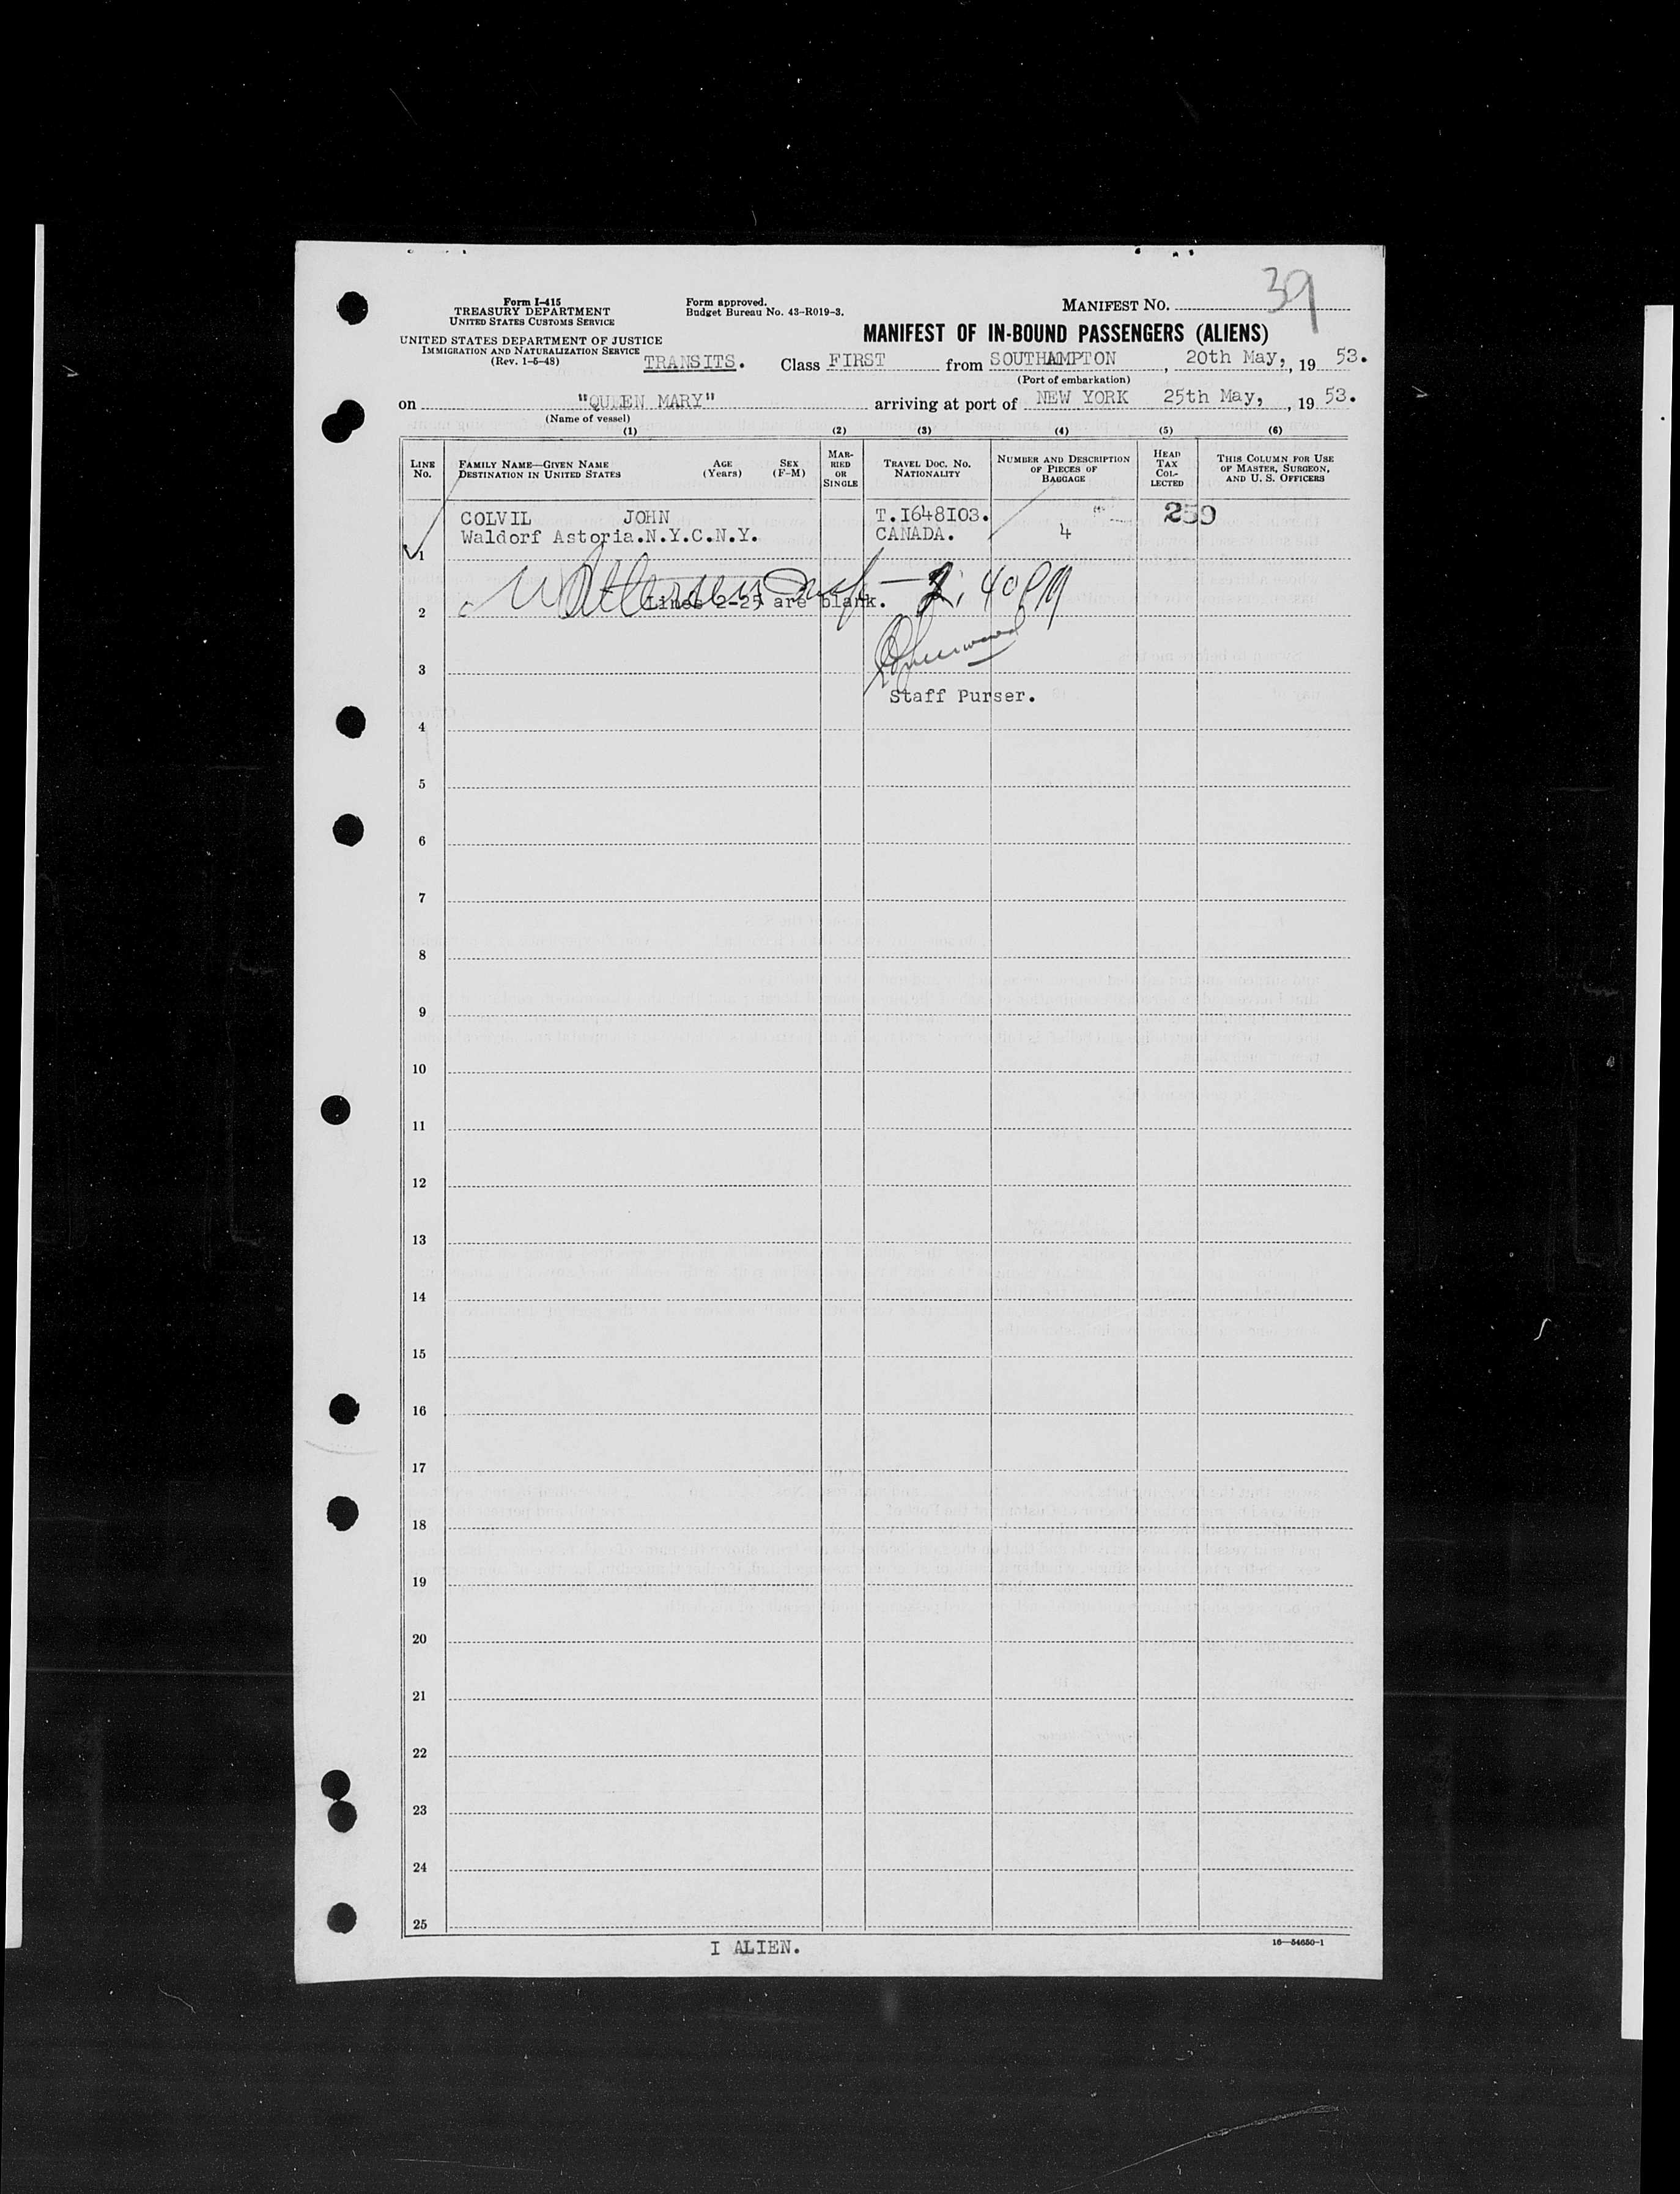 39
Form I-415
TREASURY DEPARTMENT
UNITED STATES CUSTOMS SERVICE
Form approved.
Budget Bureau No. 43-R019-3.
MANIFEST NO.
UNITED STATES DEPARTMENT OF JUSTICE
IMMIGRATION AND NATURALIZATION SERVICE
(Rev. 1-5-48)
MANIFEST OF IN-BOUND PASSENGERS (ALIENS)
TRANSITS. Class FIRST from SOUTHAMPTON, 20th May, , 19 53.
(Port of embarkation)
on "QUEEN MARY" arriving at port of NEW YORK 25th May, , 19 53.
(Name of vessel)
(1) (2) (3) (4) (5) (6)
LINE NO.
FAMILY NAME—GIVEN NAME
DESTINATION IN UNITED STATES
AGE (Years)
SEX (F-M)
MARRIED OR SINGLE
TRAVEL DOC. NO. NATIONALITY
NUMBER AND DESCRIPTION OF PIECES OF BAGGAGE
HEAD TAX COLLECTED
THIS COLUMN FOR USE OF MASTER, SURGEON, AND U. S. OFFICERS
COLVIL JOHN T.I648I03. 259
Waldorf Astoria.N.Y.C.N.Y. CANADA. 4
1
2:40 PM
Lines 2-25 are blank.
2
3
Staff Purser.
4
5
6
7
8
9
10
11
12
13
14
15
16
17
18
19
20
21
22
23
24
25
I ALIEN.
16—54650-1